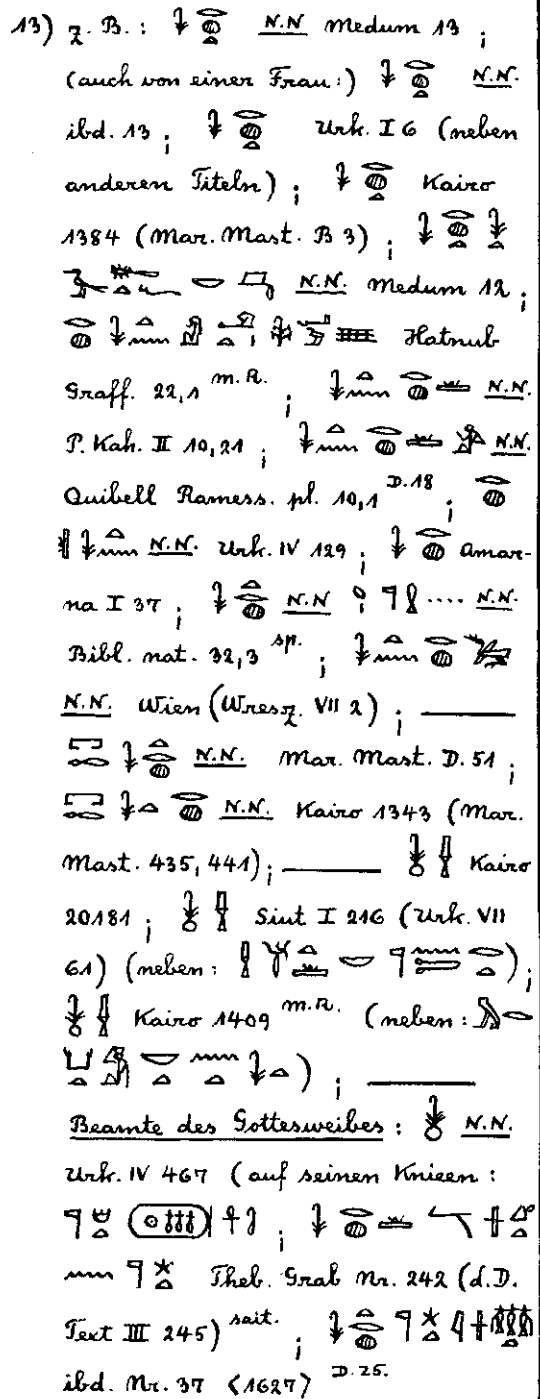 13) z. B.: 𓇓𓂋𓐍𓏏 N.N Medum 13;
(auch von einer Frau:) 𓇓𓂋𓐍𓏏 N.N.
ibd. 13; 𓇓𓂋𓐍𓏏 Urk. I 6 (neben
anderen Titeln); 𓇓𓂋𓐍𓏏 Kairo
1384 (Mar. Mast. B 3); 𓇓𓂋𓐍𓏏
N.N. Medum 12;
Hatnub
Graff. 22,1 m.R.; 𓇓𓏏𓈖𓂋𓐍𓏛 N.N.
P. Kah. II 10,21; 𓇓𓏏𓈖𓂋𓐍𓏛 N.N.
Quibell Ramess. pl. 10,1 D.18; 𓂋𓐍
𓇓𓏏𓈖 N.N. Urk. IV 129; 𓇓𓂋𓐍 Amar-
na I 37; 𓇓𓏏𓂋𓐍 N.N .... N.N.
Bibl. nat. 32,3 sp.; 𓇓𓏏𓈖𓂋𓐍
N.N. Wien (Wresz. VII 2); ———
𓇓𓏏𓂋𓐍 N.N. Mar. Mast. D. 51;
𓇓𓏏𓂋𓐍 N.N. Kairo 1343 (Mar.
Mast. 435, 441); ——— Kairo
20181; Siut I 216 (Urk. VII
61) (neben: );
Kairo 1409 m.R. (neben:
); ———
Beamte des Gottesweibes: N.N.
Urk. IV 467 (auf seinen Knieen:
; 𓇓𓂋𓐍𓏛
𓈖𓊹 Theb. Grab Nr. 242 (d.D.
Text III 245) sait.; 𓇓𓏏𓂋𓐍𓊹
ibd. Nr. 37 <1627> D.25.